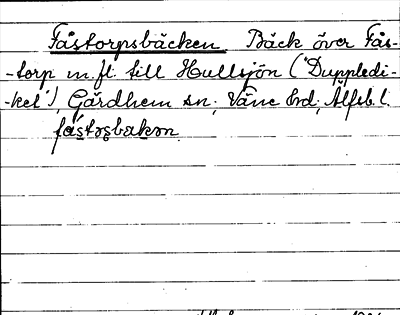 Fåstorpsbäcken Bäck över Fås-
-torp m. fl. till Hullsjön ("Duppledi-
-kel") Gärdhem sn; Väne hd; Älfsb. l.
fåstosbakən